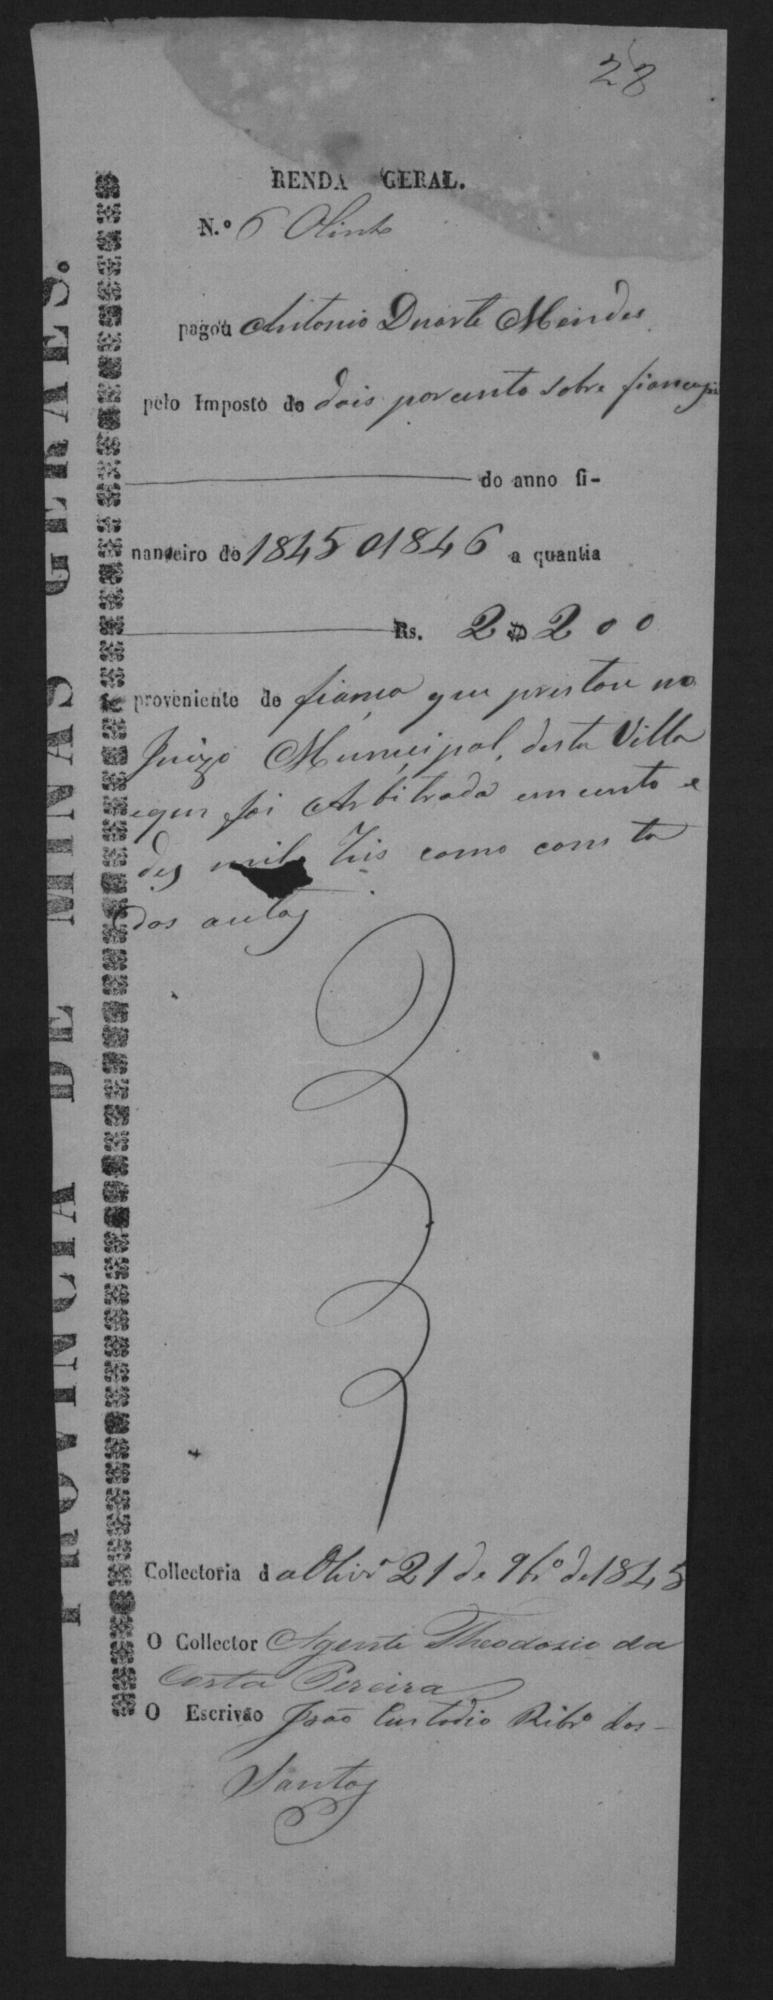 28
PROVINCIA DE MINAS GERAES.
RENDA GERAL.
N.º 6
pagou Antonio Duarte Mendes
pelo Imposto de dois por cento sobre fiança
do anno fi-
nanceiro de 1845 a 1846 a quantia
Rs. 2$200
proveniente de fiança que prestou no
Juizo Municipal, desta Villa
e que foi Arbitrada em cento e
des mil reis como consta
dos autos
Collectoria da Olivrª 21 de 9brº de 1845
O Collector Agente Theodosio da
Costa Pereira
O Escrivão João Custodio Ribrº dos
Santos